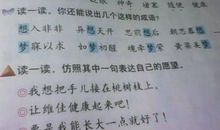 读一读,你还能说出几个这样的成语?
想入非非 异想天开 思前想后 朝思暮想
梦寐以求 如梦初醒 魂牵梦萦
读一读,仿照其中一句表达自己的愿望。
我想把手儿接在桃树枝上。
让维佳健康起来吧!
我能长大一点就好了!